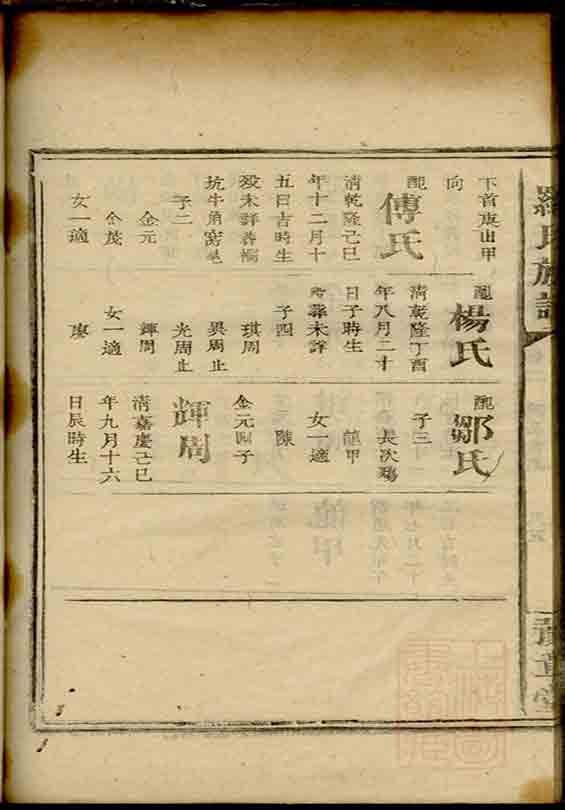 羅氏族譜
豫章堂
下首庚山甲
向
配
傅氏
清乾隆己巳
年十二月十
五日吉時生
歿未詳葬桐
坑牛角窩
子二
金元
金茂
女一適
配
楊氏
清乾隆丁酉
年八月二十
日子時生
歿葬未詳
子四
琪周
異周止
光周止
輝周
女一適
廖
配
鄒氏
子三
長次殤
龍甲
女一適
陳
金元四子
輝周
清嘉慶己巳
年九月十六
日辰時生
上海圖
書館藏